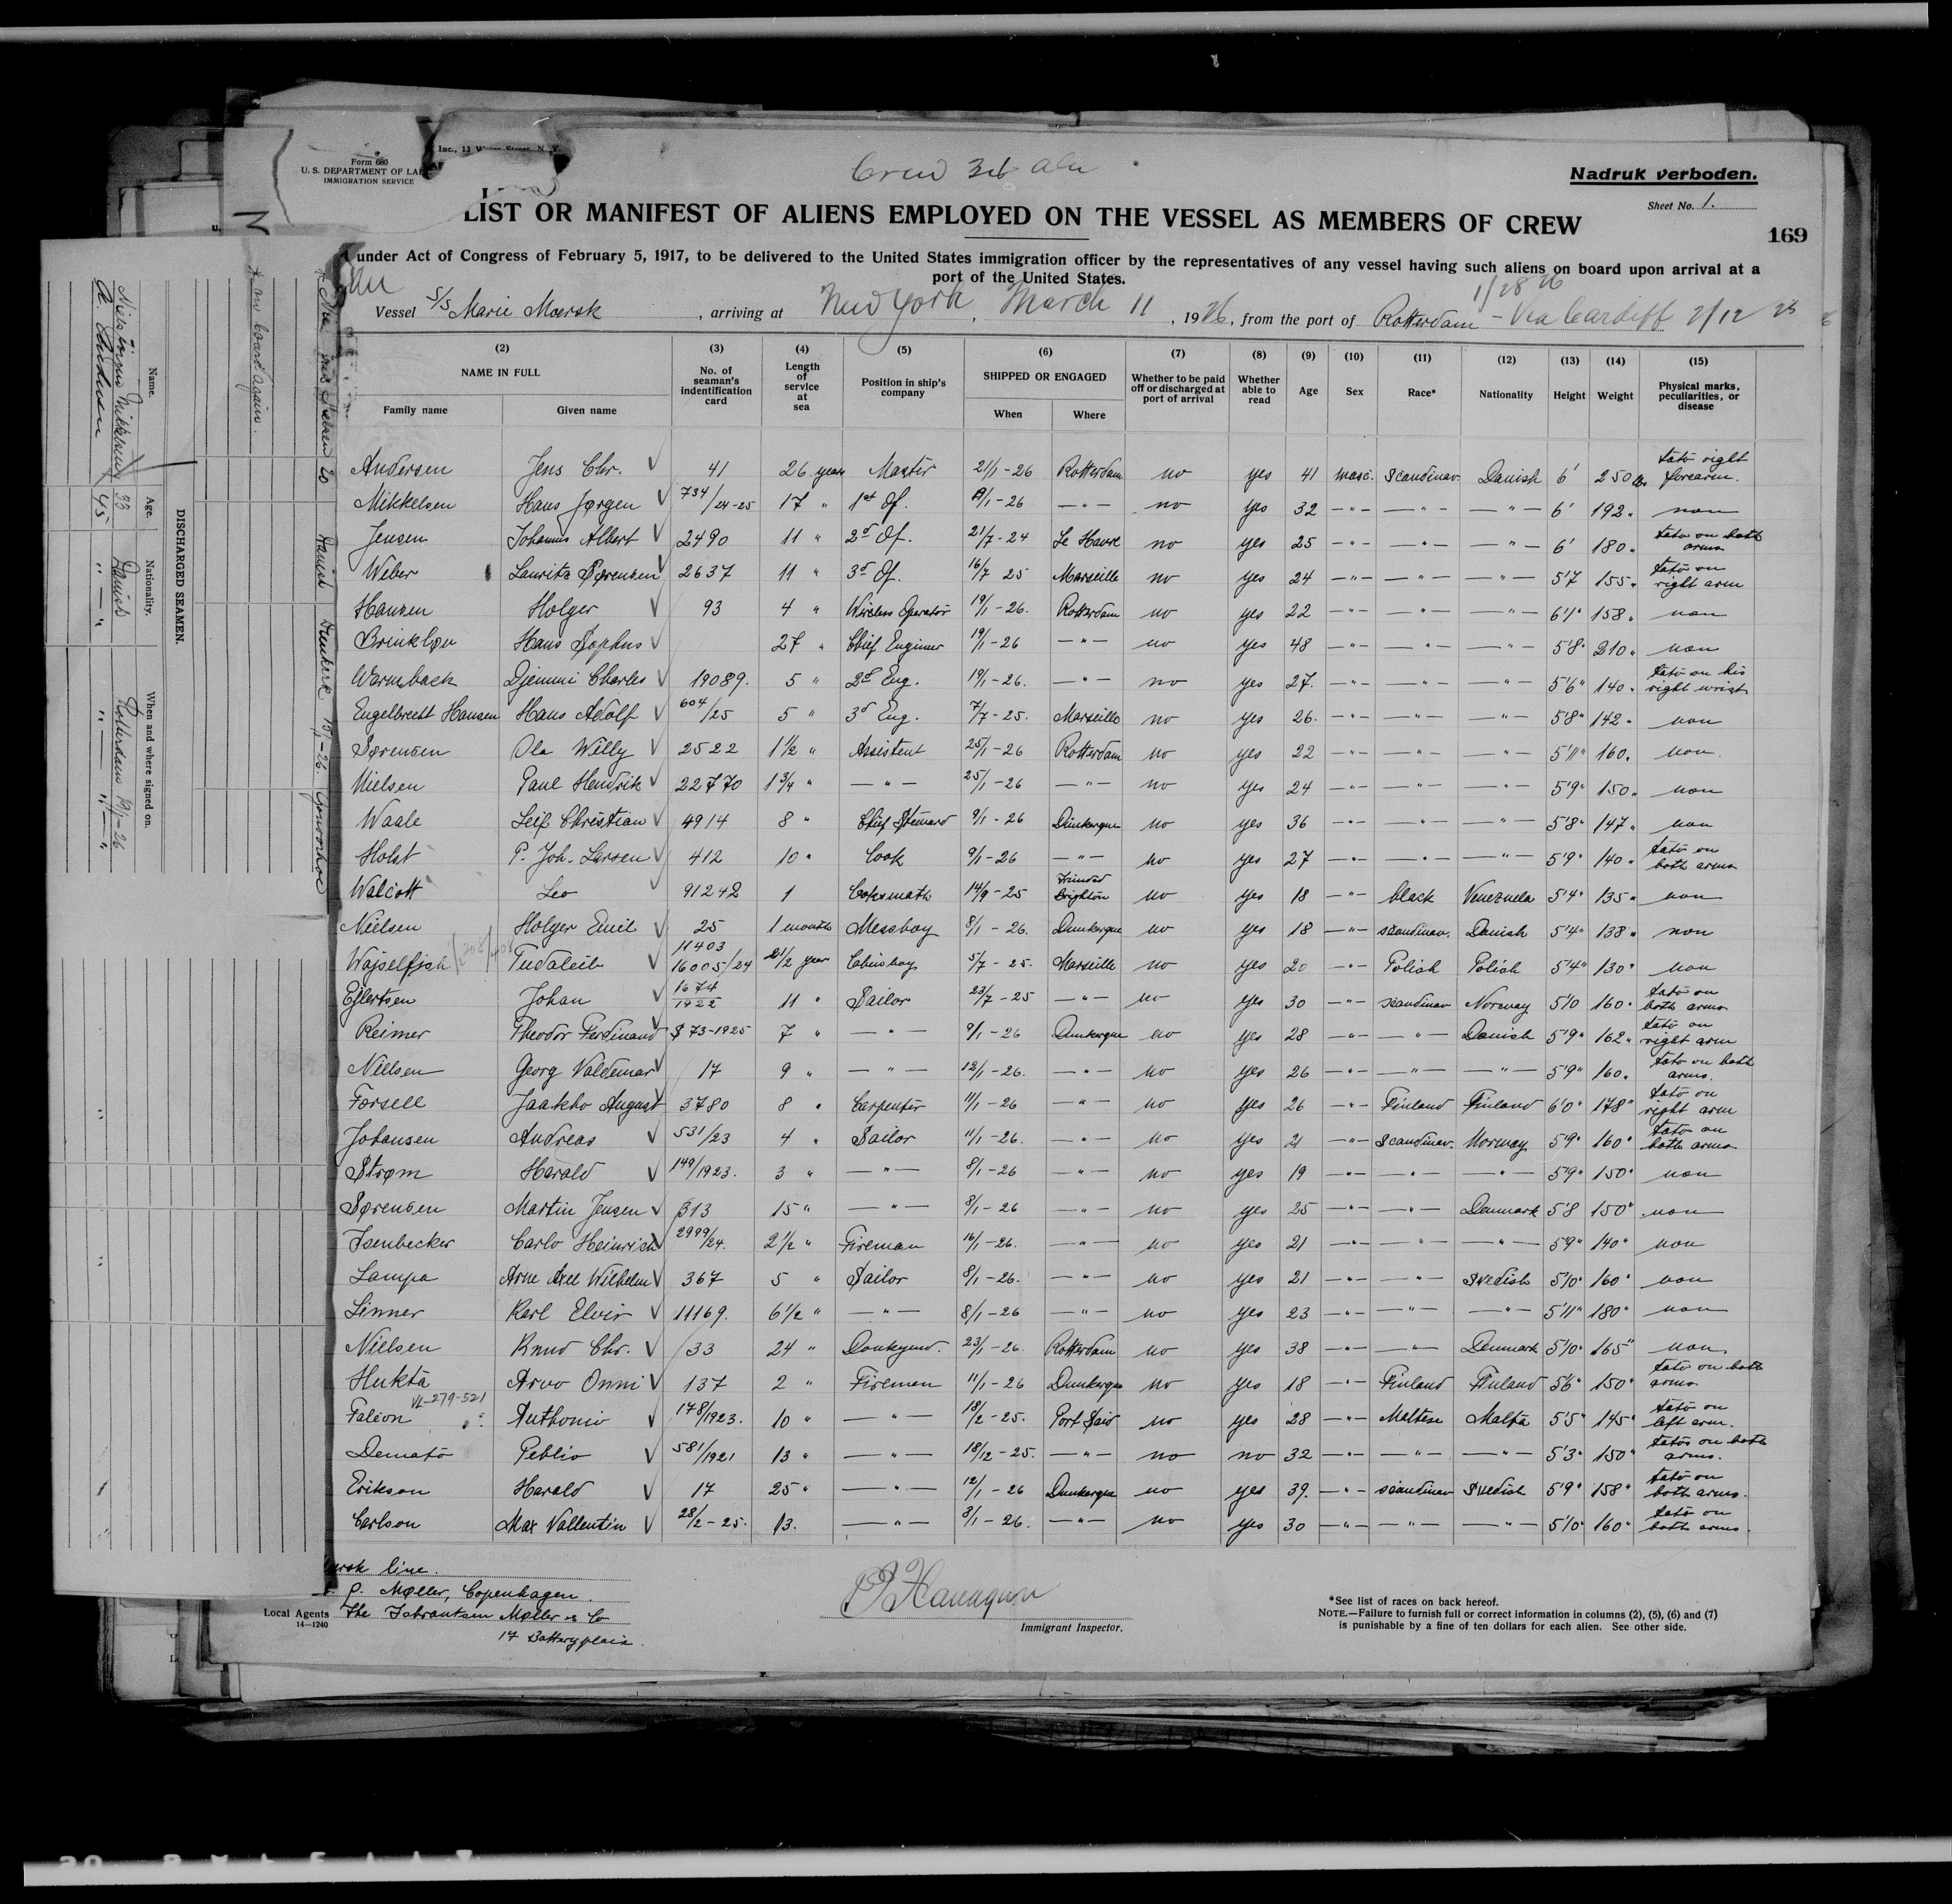 Form 680
U. S. DEPARTMENT OF LA
IMMIGRATION SERVICE
Inc., 13 Water Street, N. Y.
Crew 36
Nadruk verboden.
Sheet No. 1.
169
LIST OR MANIFEST OF ALIENS EMPLOYED ON THE VESSEL AS MEMBERS OF CREW
under Act of Congress of February 5, 1917, to be delivered to the United States immigration officer by the representatives of any vessel having such aliens on board upon arrival at a
port of the United States.
1/28 26
Vessel S/S Marie Maersk, arriving at New York, March 11, 1926, from the port of Rotterdam - Via Cardiff 2/12 26
(2) (3) (4) (5) (6) (7) (8) (9) (10) (11) (12) (13) (14) (15)
NAME IN FULL
Family name Given name
No. of seaman's indentification card
Length of service at sea
Position in ship's company
SHIPPED OR ENGAGED
When Where
Whether to be paid off or discharged at port of arrival
Whether able to read
Age
Sex
Race*
Nationality
Height
Weight
Physical marks, peculiarities, or disease
Andersen Jens Chr. 41 26 years Master 21/1-26 Rotterdam no yes 41 masc. Scandinav. Danish 6' 250 lbs tato right forearm.
Mikkelsen Hans Jørgen 734/24-25 17 " 1st Of. 19/1-26 -"- no yes 32 -"- -"- -"- 6' 192 " non
Jensen Johannes Albert 2490 11 " 2d Of. 21/7-24 Le Havre no yes 25 -"- -"- -"- 6' 180 " tato on both arms
Weber Lauritz Sørensen 2637 11 " 3d Of. 16/7 25 Marseille no yes 24 -"- -"- -"- 5'7 155 " tato on right arm
Hansen Holger 93 4 " Wireless Operator 19/1-26. Rotterdam no yes 22 -"- -"- -"- 6'1" 158 " non
Hans Sophus 27 " Chief Engineer 19/1-26 -"- no yes 48 -"- -"- -"- 5'8" 210 " non
Warmback Djemmi Charles 19089. 5 " 2d Eng. 19/1-26. -"- no yes 27. -"- -"- -"- 5'6" 140 " tato on his right wrist
Engelbrett Hansen Hans Adolf 604/25 5 " 3d Eng. 7/7-25. Marseille no yes 26. -"- -"- -"- 5'8" 142 " non
Sørensen Ole Willy 2522 1 1/2 " Assistent 25/1-26 Rotterdam no yes 22 -"- -"- -"- 5'11" 160 " non
Nielsen Paul Hendrik 22770 1 3/4 " -"- 25/1-26 -"- no yes 24 -"- -"- -"- 5'9" 150 " non
Waale Leif Christian 4914 8 " Chief Steward 9/1-26 Dunkerque no yes 36 -"- -"- -"- 5'8" 147 " non
Holst P. Joh. Larsen 412 10 " Cook 9/1-26 -"- no yes 27 -"- -"- -"- 5'9" 140 " tato on both arms
Walcott Leo 91242 1 Coksmath 14/9-25 Trinidad Brighton no yes 18 -"- black Venezuela 5'4" 135 " non
Nielsen Holger Emil 25 1 month Messboy 8/1-26. Dunkerque no yes 18 -"- scandinav. Danish 5'4" 138 " non
Wajselfisch Tudaleib 11403 16005/24 2 1/2 year Cabinboy 5/7-25. Marseille no yes 20 -"- Polish Polish 5'4" 130 " non
Ejlertsen Johan 1674/1922 11 " Sailor 23/7-25 -"- no yes 30 -"- scandinav Norway 5'10 160 " tato on both arms
Reimer Theodor Ferdinand 873-1925 7 " -"- 9/1-26 Dunkerque no yes 28 -"- -"- Danish 5'9" 162 " tato on right arm
Nielsen Georg Valdemar 17 9 " -"- 12/1-26. -"- no yes 26 -"- -"- -"- 5'9" 160 " tato on both arms.
Forsell Jaakko August 3780 8 " Carpenter 11/1-26 -"- no yes 26 -"- Finland Finland 6'0" 178 " tato on right arm
Johansen Andreas 531/23 4 " Sailor 11/1-26. -"- no yes 21 -"- Scandinav. Norway 5'9" 160 " tato on both arms
Strøm Harald 149/1923. 3 " -"- 8/1-26 -"- no yes 19 -"- -"- -"- 5'9" 150 " non
Sørensen Martin Jensen 313 15 " -"- 8/1-26 -"- no yes 25 -"- -"- Denmark 5'8 150 " non
Isenbecker Carlo Heinrich 2999/24. 2 1/2 " Fireman 16/1-26. -"- no yes 21 -"- -"- -"- 5'9" 140 " non
Lampa Arne Axel Wilhelm 367 5 " Sailor 8/1-26. -"- no yes 21 -"- -"- Swedish 5'10" 160 " non
Linner Karl Elvir 11169. 6 1/2 " -"- 8/1-26 -"- no yes 23 -"- -"- -"- 5'11" 180 " non
Nielsen Knud Chr. 33 24 " Donkeym. 23/1-26. Rotterdam no yes 38 -"- -"- Denmark 5'10" 165 " non
Hukta Arvo Onni 137 2 " Firemen 11/1-26 Dunkerque no yes 18 -"- Finland Finland 5'6" 150 " tato on both arms
VL-279-521
Falzon Anthonio 178/1923. 10 " -"- 18/2-25. Port Said no yes 28 -"- Maltese Malta 5'5" 145 " tato on left arm.
Demato Peblio 581/1921 13 " -"- 18/12-25. -"- no no 32 -"- -"- -"- 5'3" 150 " tato on both arms.
Erikson Harald 17 25 " -"- 12/1-26 Dunkerque no yes 39. -"- scandinav Swedish 5'9" 158 " tato on both arms.
Carlson Max Vallentin 28/2-25. 13. -"- 8/1-26. -"- no yes 30 -"- -"- -"- 5'10" 160 " tato on both arms.
line.
P. Møller, Copenhagen.
Local Agents The Isbrantsen Møller & Co
14—1240
17 Battery place.
Immigrant Inspector.
*See list of races on back hereof.
NOTE.—Failure to furnish full or correct information in columns (2), (5), (6) and (7)
is punishable by a fine of ten dollars for each alien. See other side.
DISCHARGED SEAMEN.
Name. Age. Nationality. When and where signed on.
Mikkelsen 33 Danish Rotterdam 19/1-26
A. Andersen 45 -"- -"- -"-
on board again.
20 Danish Dunkerk